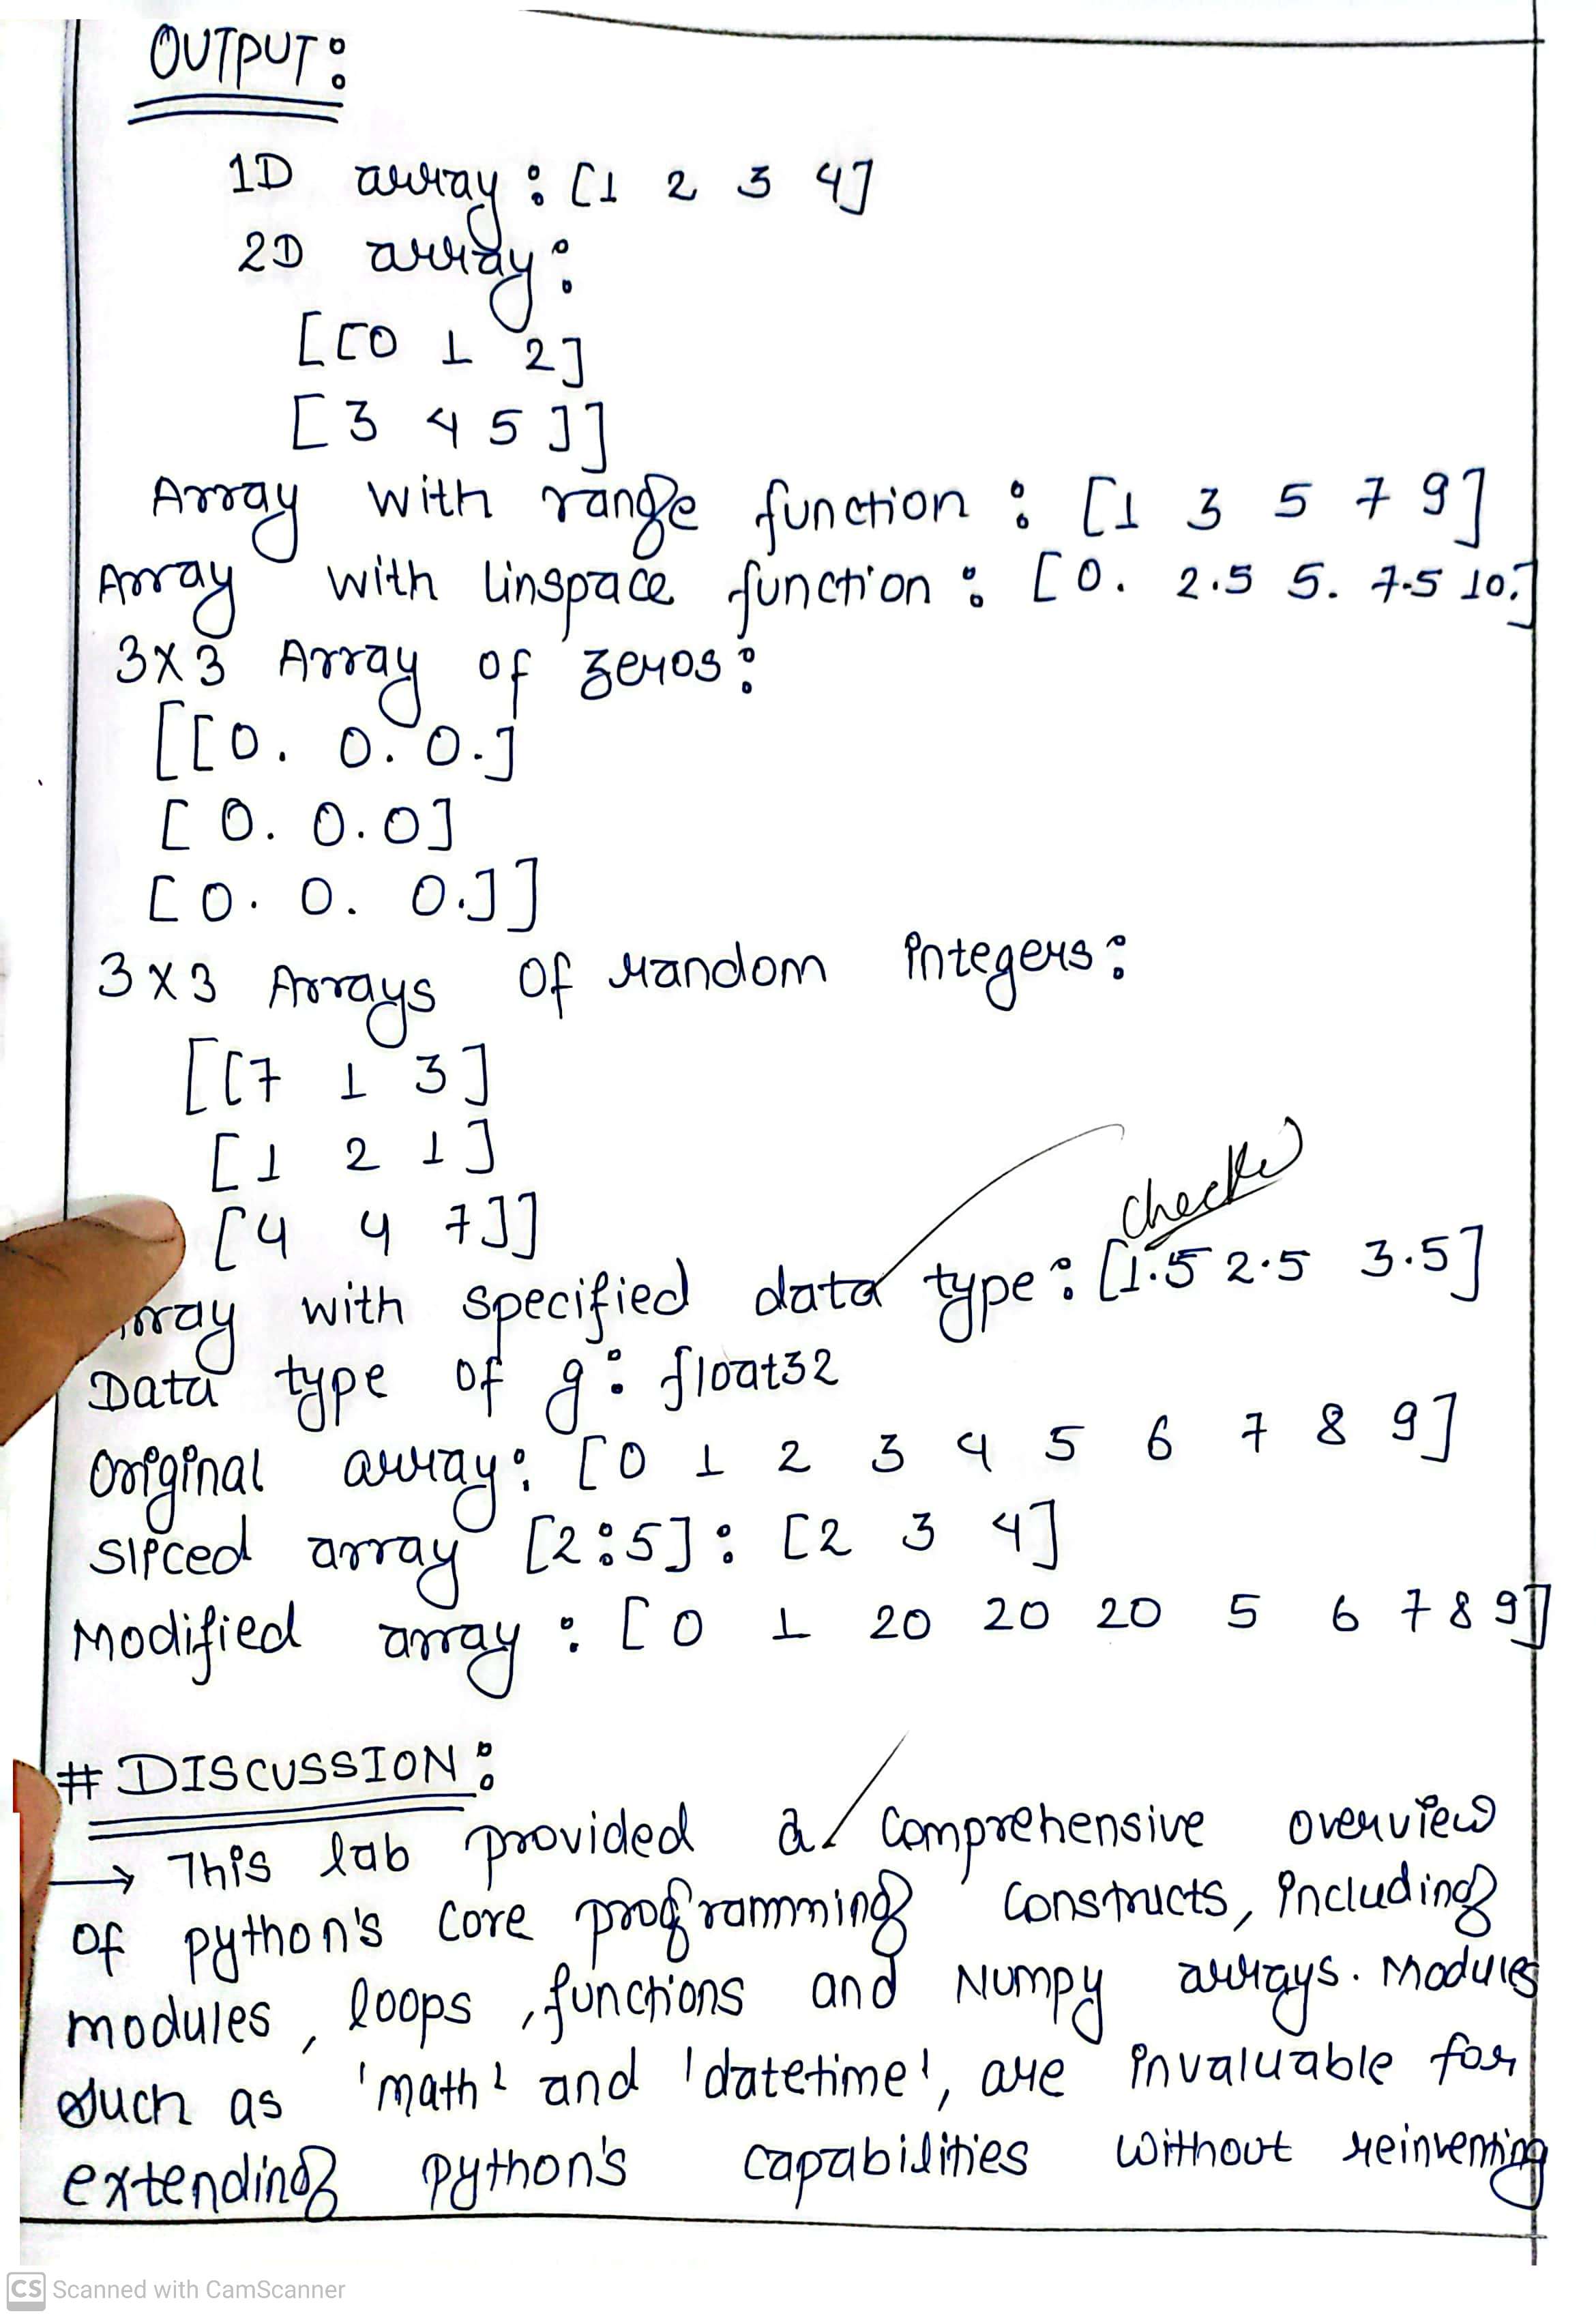 OUTPUT:
1D array: [1 2 3 4]
2D array:
[[0 1 2]
[3 4 5]]
Array with range function : [1 3 5 7 9]
Array with linspace function : [0. 2.5 5. 7.5 10.]
3x3 Array of zeros:
[[0. 0. 0.]
[0. 0. 0]
[0. 0. 0.]]
3x3 Arrays of random integers:
[[7 1 3]
[1 2 1]
[4 4 7]]
with specified data type: [1.5 2.5 3.5]
Data type of g: float32
Original array: [0 1 2 3 4 5 6 7 8 9]
Sliced array [2:5]: [2 3 4]
Modified array : [0 1 20 20 20 5 6 7 8 9]
# DISCUSSION:
→ This lab provided a comprehensive overview
of python's core programming constructs, including
modules, loops, functions and Numpy arrays. Modules
such as 'math' and 'datetime', are invaluable for
extending python's capabilities without reinventing
CS Scanned with CamScanner